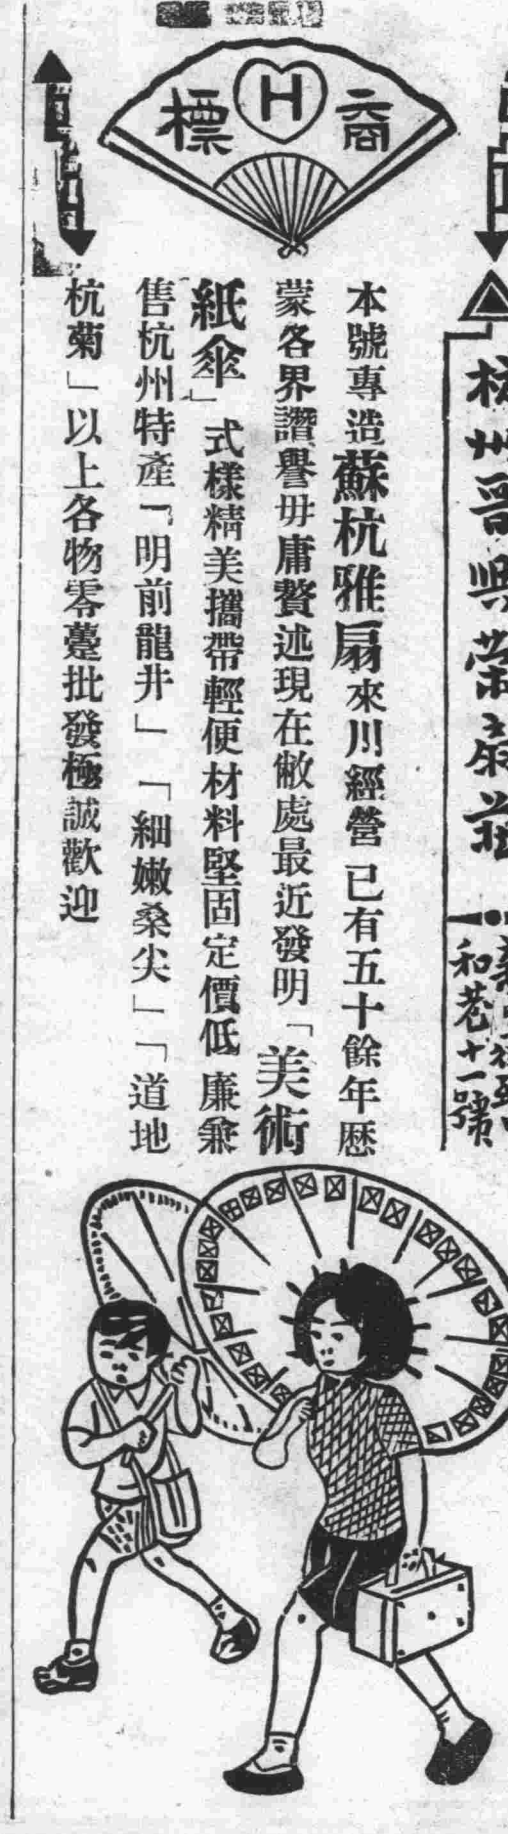 商標
H
杭州哥興荣扇莊
和巷十一號
本號專造蘇杭雅扇來川經營已有五十餘年歷
蒙各界讚譽毋庸贅述現在敝處最近發明「美術
紙傘」式樣精美攜帶輕便材料堅固定價低廉兼
售杭州特產「明前龍井」「細嫩桑尖」「道地
杭菊」以上各物零躉批發極誠歡迎